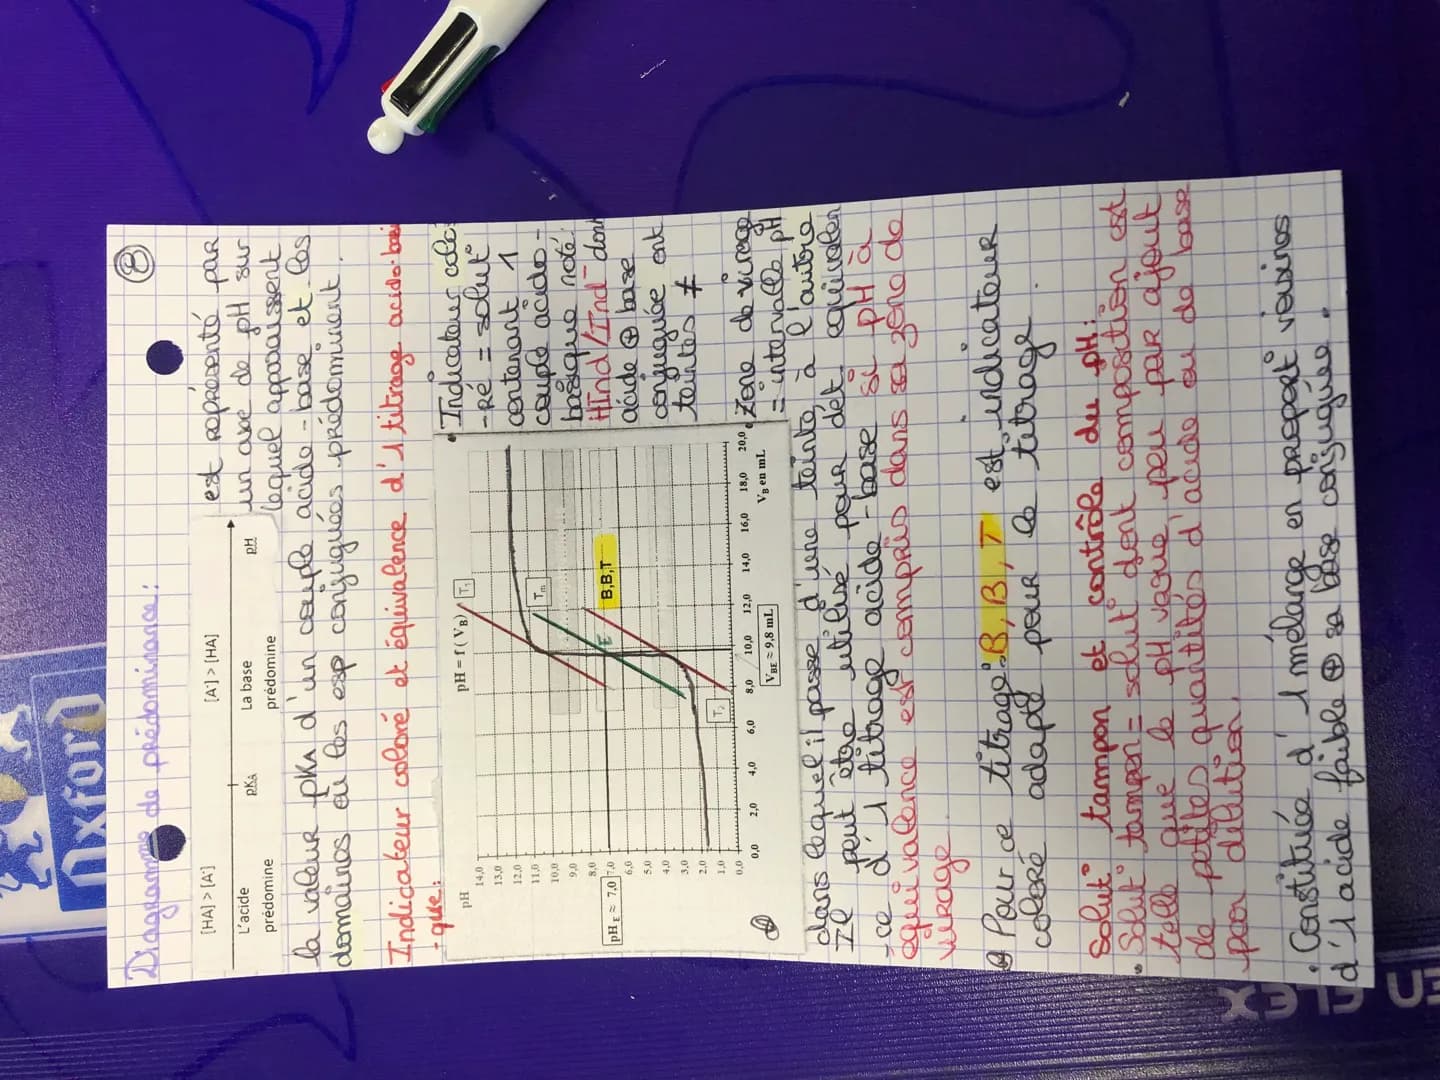 8
Diagramme de prédominance:
[HA] > [A⁻]
[A⁻] > [HA]
L'acide
prédomine
pKA
La base
prédomine
pH
est représenté par
un axe de pH sur
lequel apparaissent
la valeur pKA d'un couple acide-base et les
domaines où les esp conjuguées prédominent.
Indicateur coloré et équivalence d'1 titrage acido-basi
-que:
pH
pH = f ( VB )
14,0
13,0
12,0
11,0
10,0
9,0
8,0
7,0
6,0
5,0
4,0
3,0
2,0
1,0
0,0
pHE ≈ 7,0
T1
Tm
T2
E
B,B,T
0,0 2,0 4,0 6,0 8,0 10,0 12,0 14,0 16,0 18,0 20,0
VBE ≈ 9,8 mL
VB en mL
• Indicateur colo
-ré = solut°
contenant 1
couple acido-
basique noté:
HInd/Ind⁻ dont
acide ⊕ base
conjuguée ont
teintes ≠
• Zone de virage
= intervalle pH
dans lequel il passe d'une teinte à l'autre
Il peut être utilisé pour dét équivalen
-ce d'1 titrage acide-base si pH à
équivalence est compris dans sa zone de
virage.
Pour ce titrage: B, B, T est indicateur
coloré adapté pour le titrage.
Solut° tampon et contrôle du pH:
• Solut° tampon = solut° dont composition est
telle que le pH varie peu par ajout
de petites quantités d'acide ou de base
par dilution.
• Constituée d'1 mélange en proport° voisines
d'1 acide faible ⊕ sa base conjuguée.
Oxford
EN FLEX